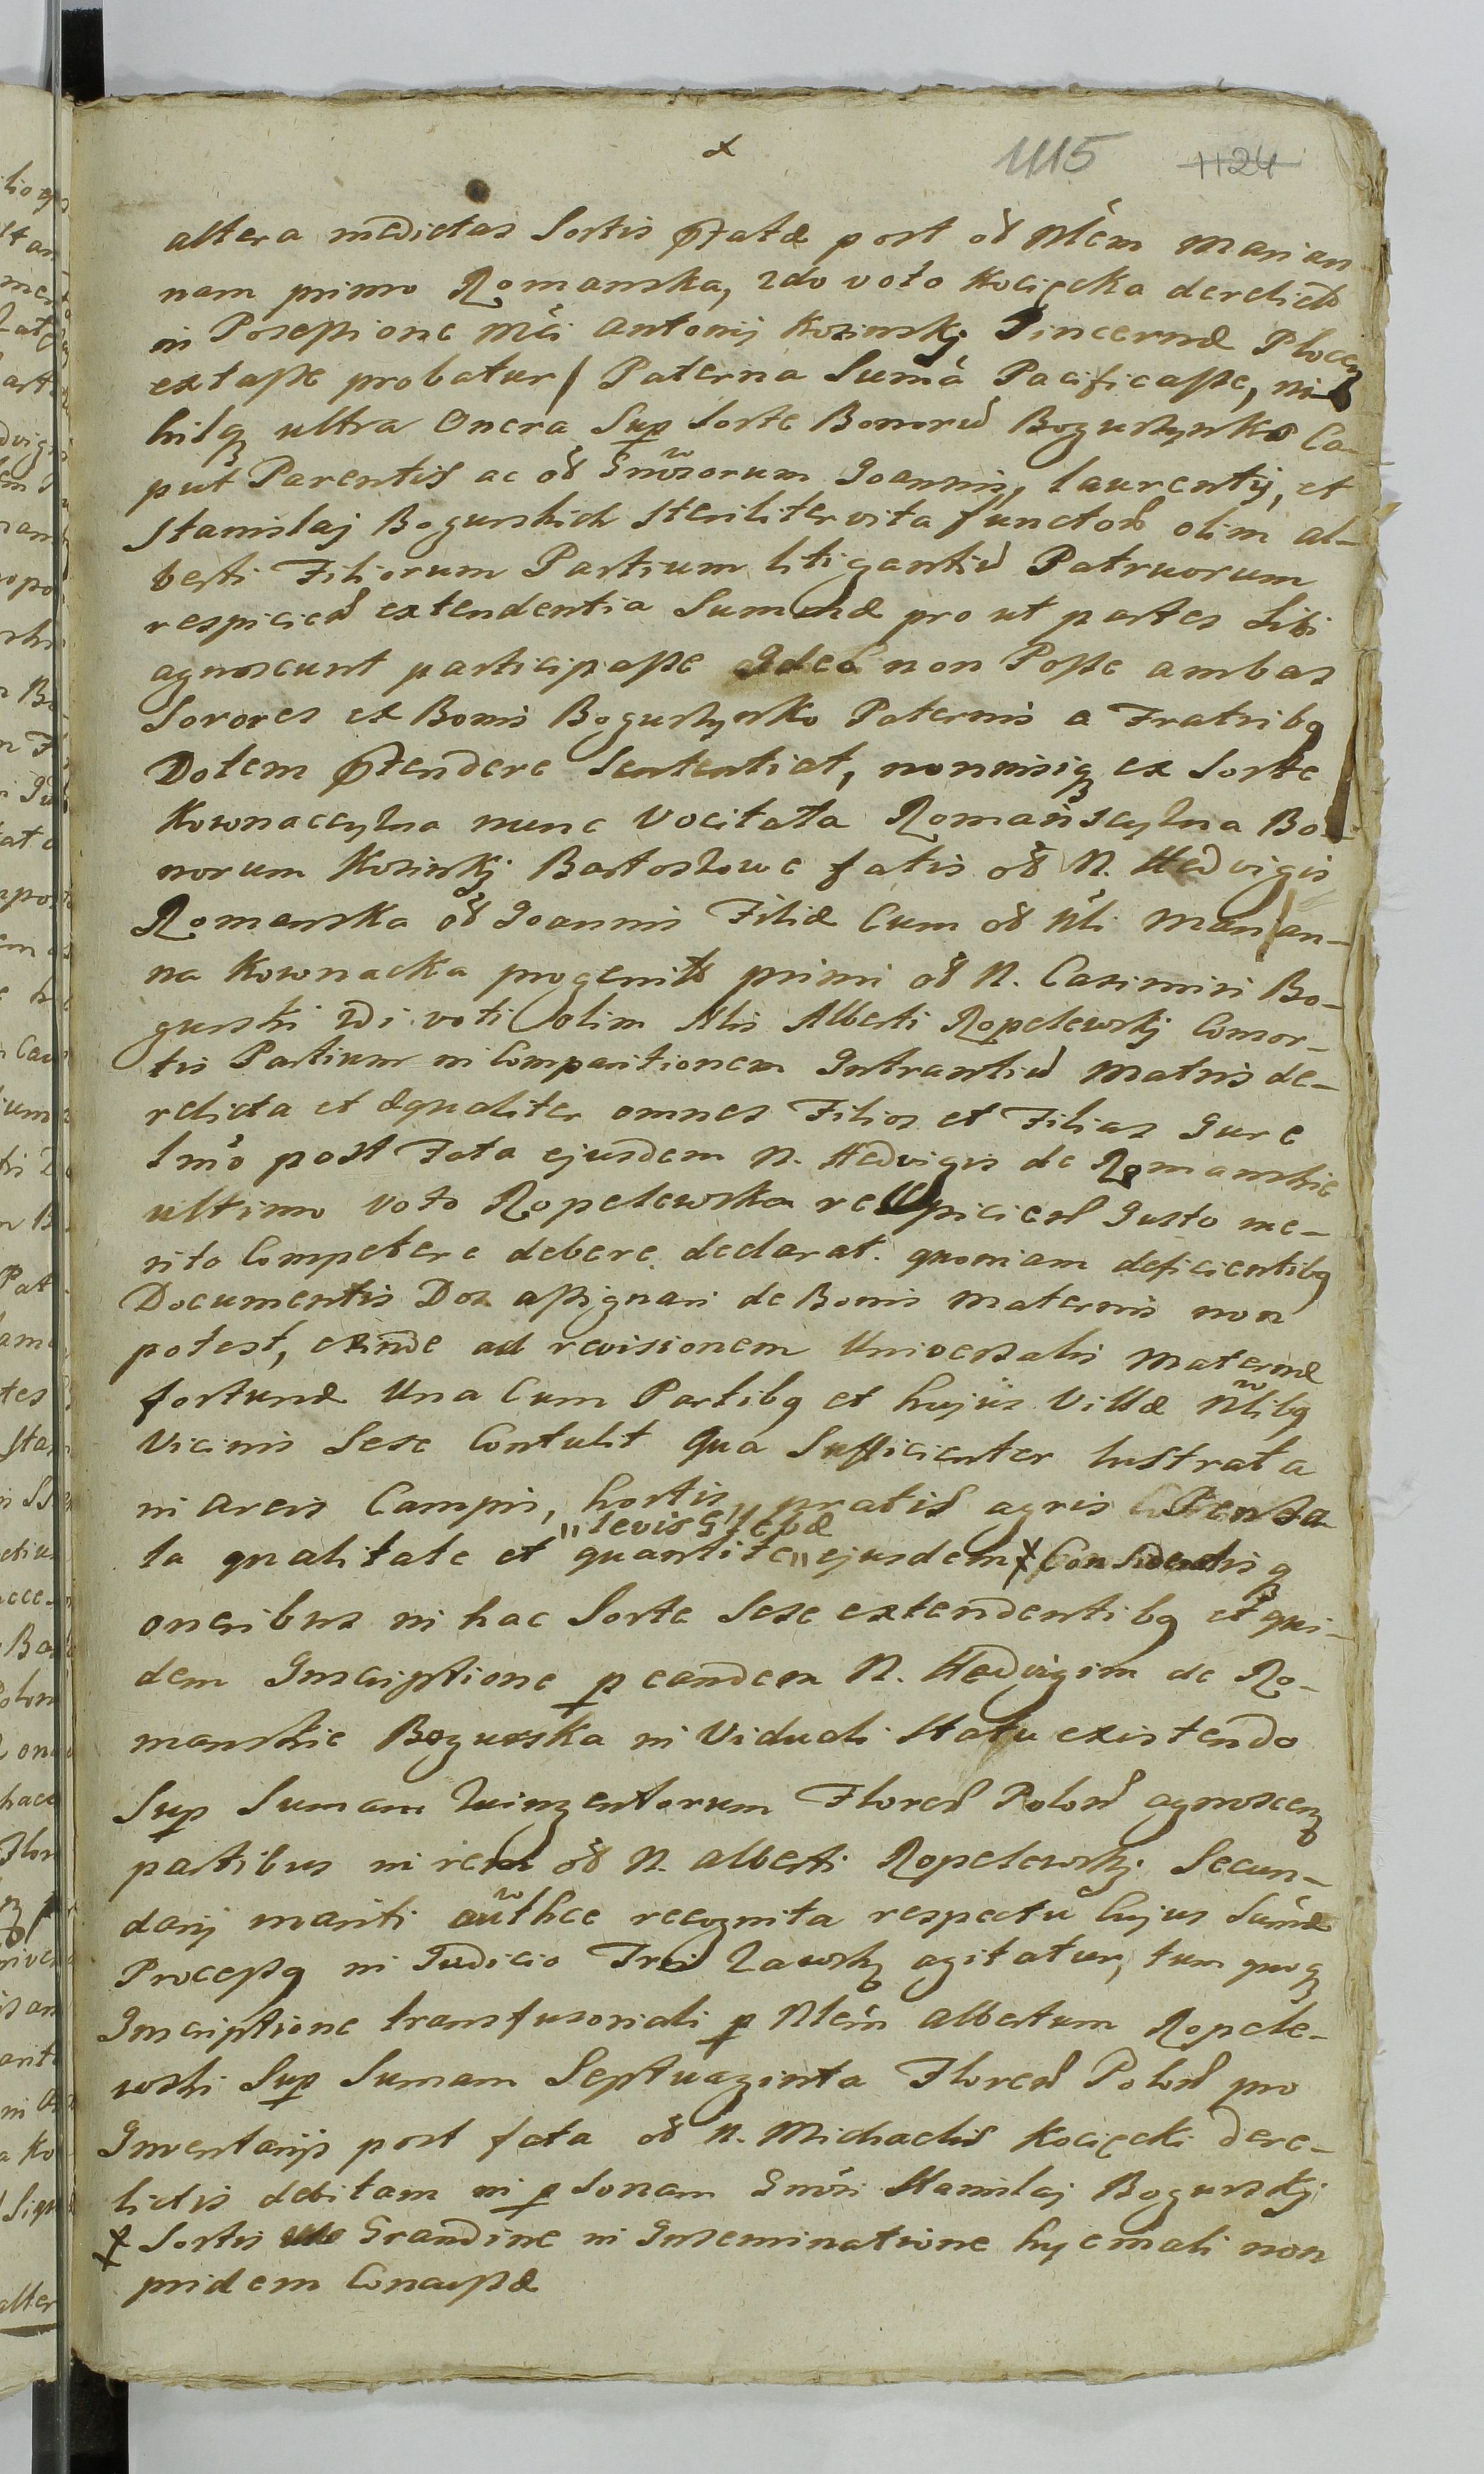 x
1115 1124
altera medietas Sortis Ptatæ post oð Nlem Marian
nam primo Romanska, 2do voto Kocięcka derelicta
in Possessione Mci Antonij Kosinskj Pincernæ Plocen
extasse probatur / Paterna Suma Pacificasse, ni-
hilq ultra Onera Sup Sorte Bonorũ Boguszynko Ca-
put Parentis ac oð Gnõsorum Joannis, Laurentij, et
Stanislaj Bogurskich steriliter vita functor̃ olim Al-
berti Filiorum Partium litigantiũ Patruorum
respicieñ extendentia Summæ pro ut partes Sibi
agnoscunt participasse Ideo non Posse ambas
Sorores ex Bonis Boguszynko Paternis a Fratribq
Dotem Ptendere Sententiat, nonnisiq ex Sorte
Kownaccyzna nunc Vocitata Romanscyzna Bo-
norum Kosinskj Bartoszowe fatis oð N. Hedvigis
Romanska oð Joannis Filiæ Cum oð Nli Marian-
na Kownacka progenitæ primi oð N. Casimiri Bo-
gurski 2di voti olim Nlis Alberti Ropelewskj Consor-
tis Partium in Comparitionem Intrantiũ Matris de-
relicta et æqualiter omnes Filios et Filias Jure
Imo post Fata ejusdem N. Hedvigis de Romanskie
ultimo Voto Ropelewska respicieñ Justo me-
rito Competere debere declarat. quoniam deficientibq
Documentis Dos assignari de Bonis Maternis non
potest, exinde ad revisionem Universalis Maternæ
fortunæ Una Cum Partibq et hujus Villæ Nlibq
Vicinis Sese Contulit Qua Sufficienter lustrata
in Areis Campis, hortis, pratis agris Pensa
ta qualitate et " levis Glebæ quantite " ejusdem x Consideratisq
oneribus in hac Sorte Sese extendentibq et qui-
dem Inscriptione p eandem N. Hedvigim de Ro-
manskie Bogurska in Viduali Statu existendo
Sup Sumam Quingentorum Floreñ Poloñ agnoscen
partibus in rem oð N. Alberti Ropelewskj Secun-
darij mariti authce recognita respectu hujus Sumæ
Processq in Judicio Tri Zawskj agitatur, tum quoq
Inscriptione transfusoriali p Nlem Albertum Ropele-
wski Sup Sumam Septuaginta Floreñ Poloñ pro
Inventarijs post fata oð N. Michaelis Kocięcki dere-
lictis debitam in psonam Gnosi Stanislaj Bogurskj
x Sortis Grandine in Inseminatione hyemali non
pridem Concussæ